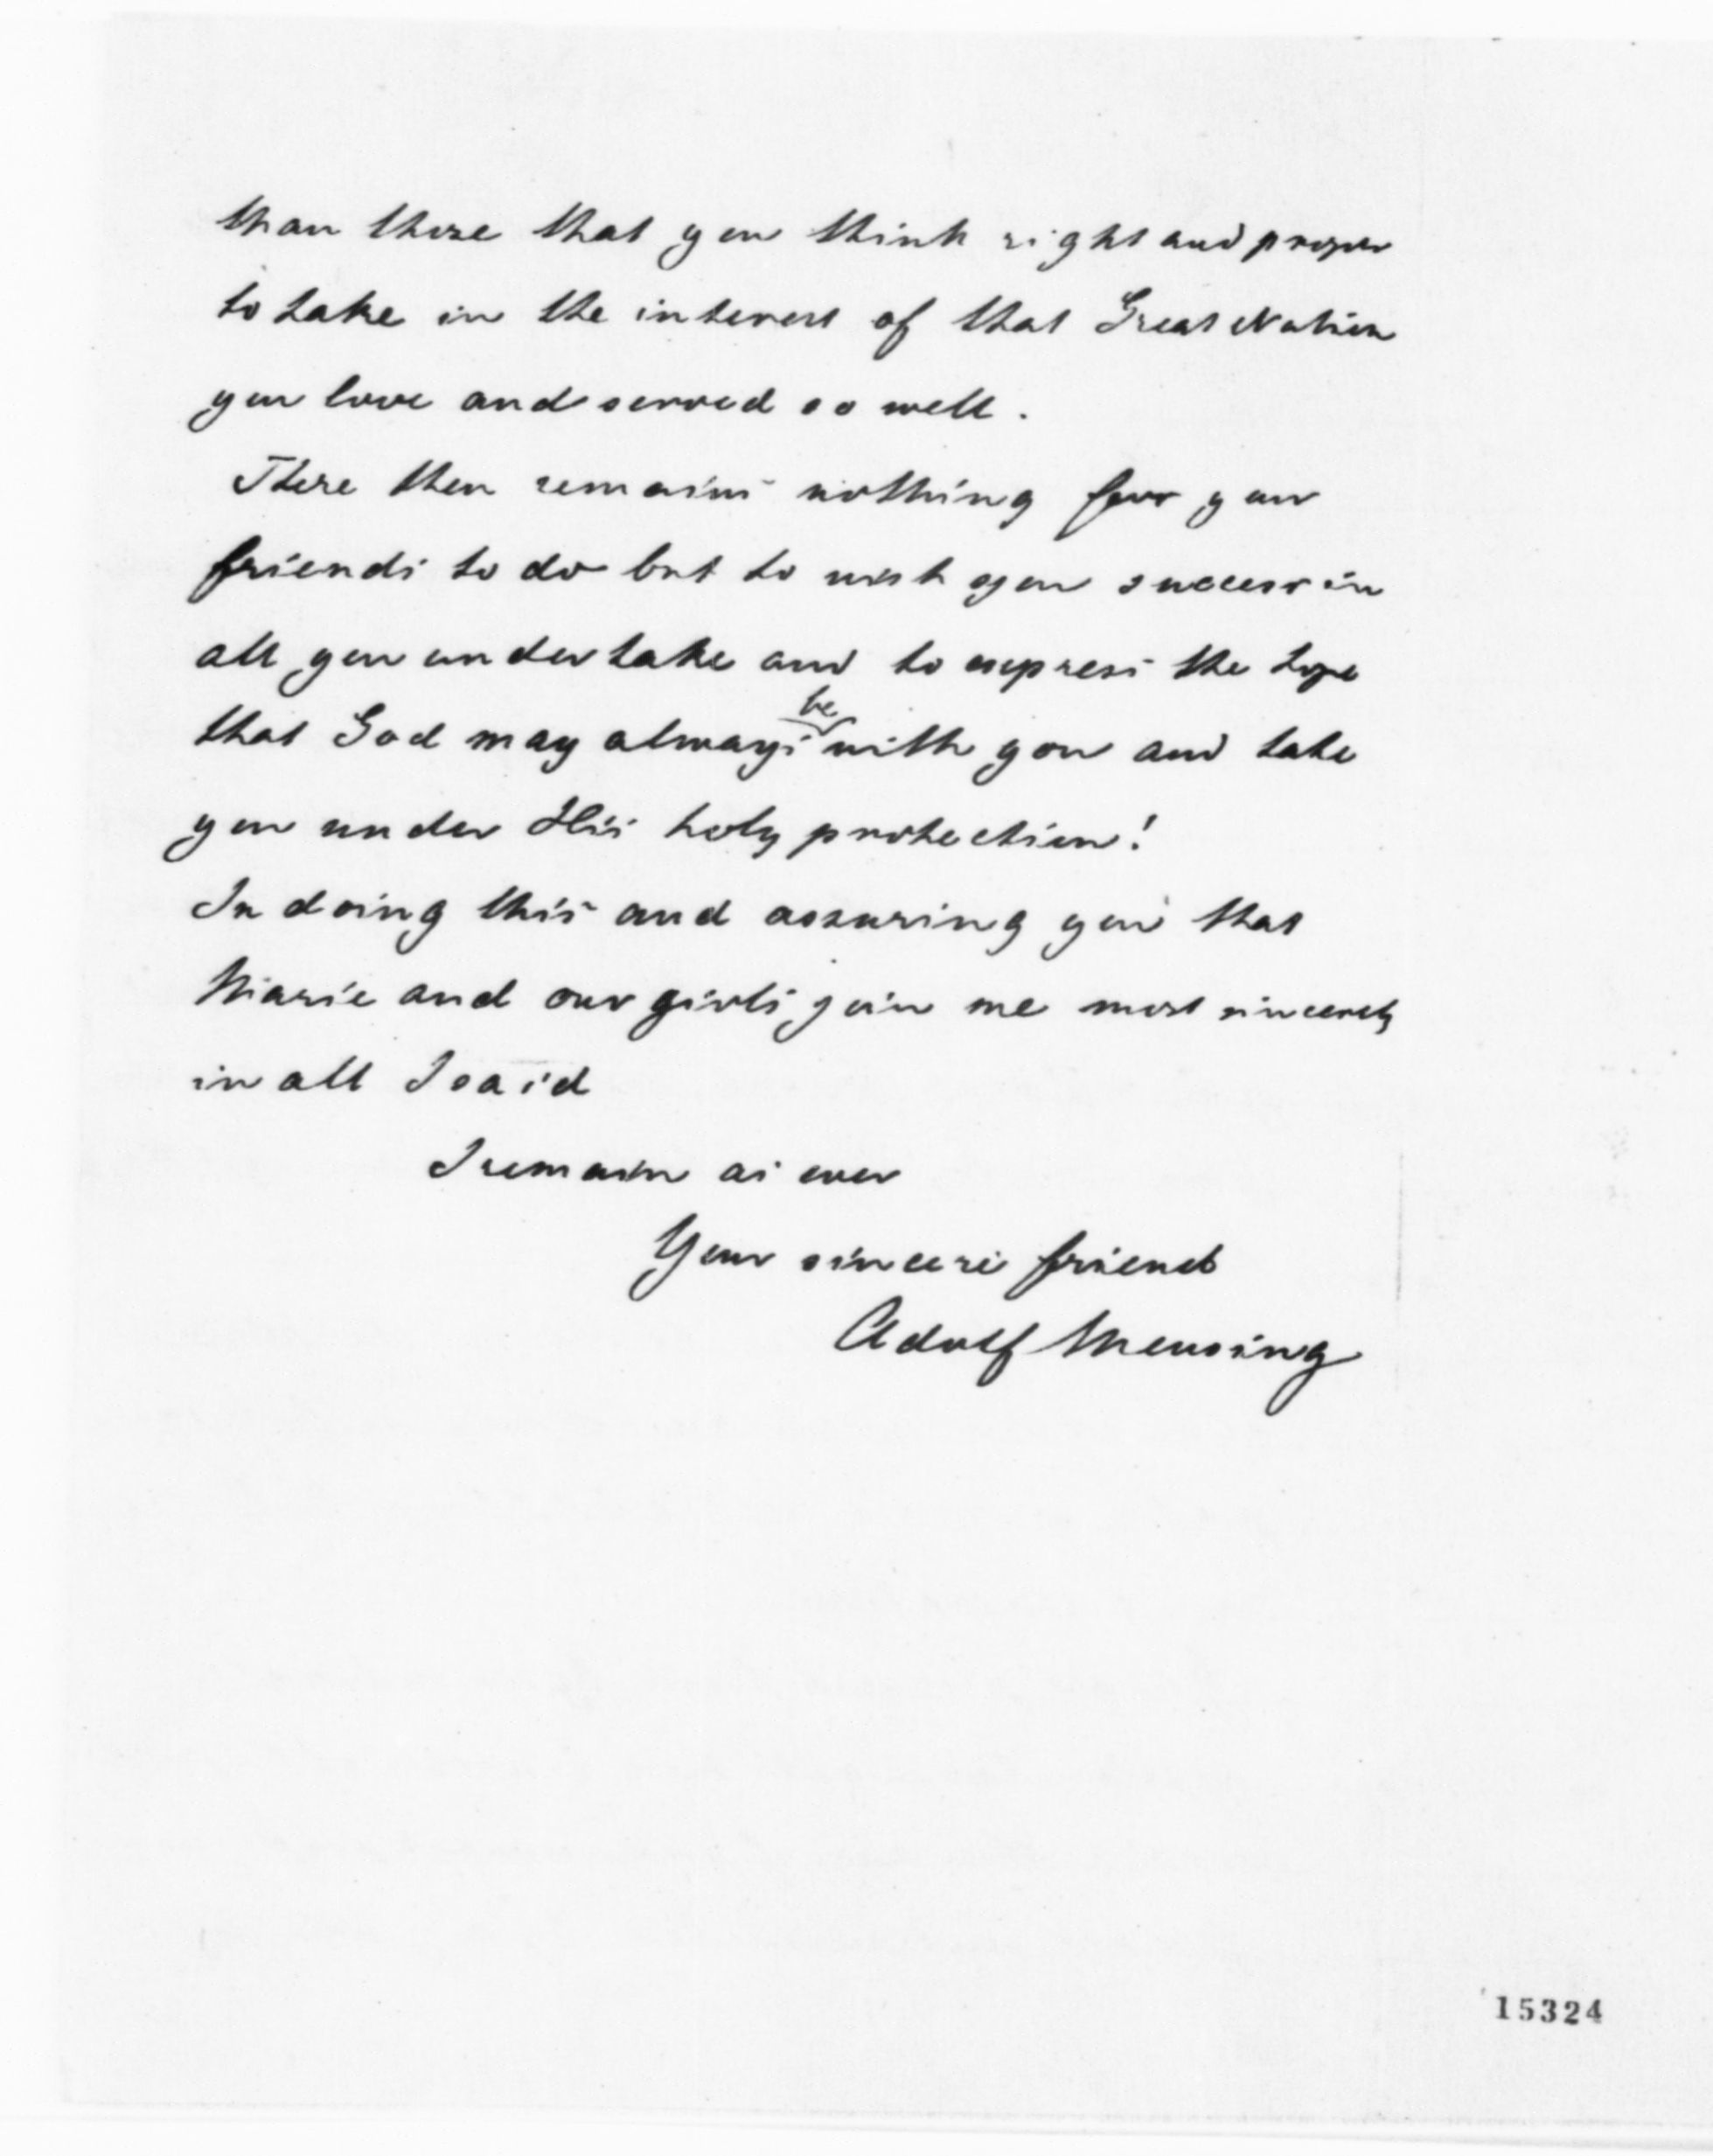 than those that you think right and proper
to take in the interest of that Great Nation
you love and served so well.
There then remains nothing for your
friends to do but to wish you success in
all you undertake and to express the hope
that God may always be with you and take
you under His holy protection!
In doing this and assuring you that
Marie and our girls join me most sincerely
in all I said
I remain as ever
Your sincere friend
Adolf Mensing
15324